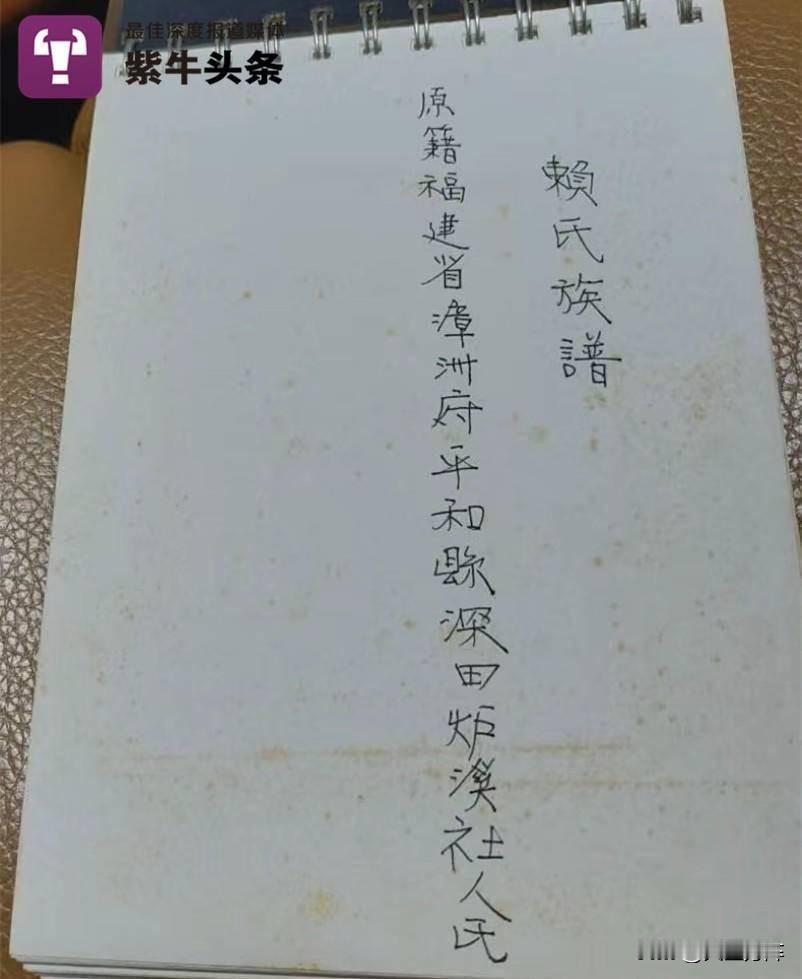 最佳深度报道媒体
紫牛头条
賴氏族譜
原籍福建省漳洲府平和縣深田炉溪社人民